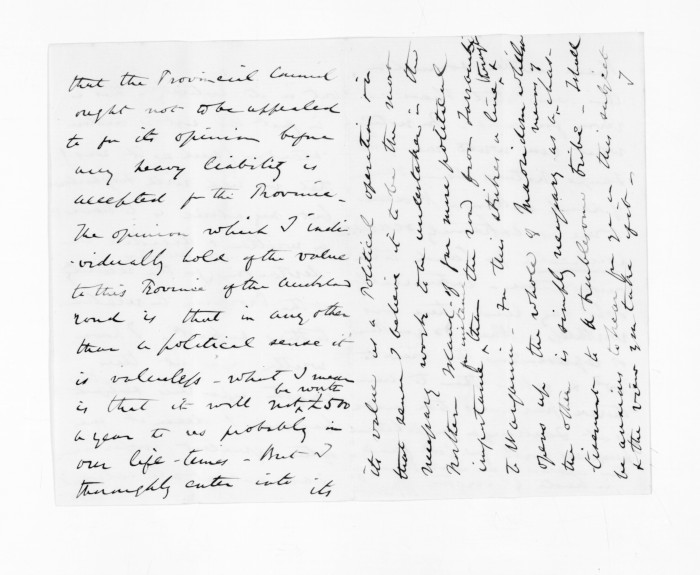 that the Provincial Council
ought not to be appealed
to for its opinion before
any heavy liability is
accepted for the Province -
The opinion which I indi
-vidually hold of the value
to this Province of the Auckland
road is that in any other
than a political sense it
is valueless - what I mean
is that it will not be worth £500
a year to us probably in
our life-times - But I
thoroughly enter into its
its value as a Political operation & in
that sense I believe it to be the most
necessary work to be undertaken in the
Northern Island - If for mere political
important for instance than the road from Taranaki
to Wanganui - for this strikes a line through &
opens up the whole of Maoridom while
the other is simply necessary as a means of chas-
tisement to a troublesome tribe - I shall
be anxious to hear from you on this subject
& the view you take of it -
I